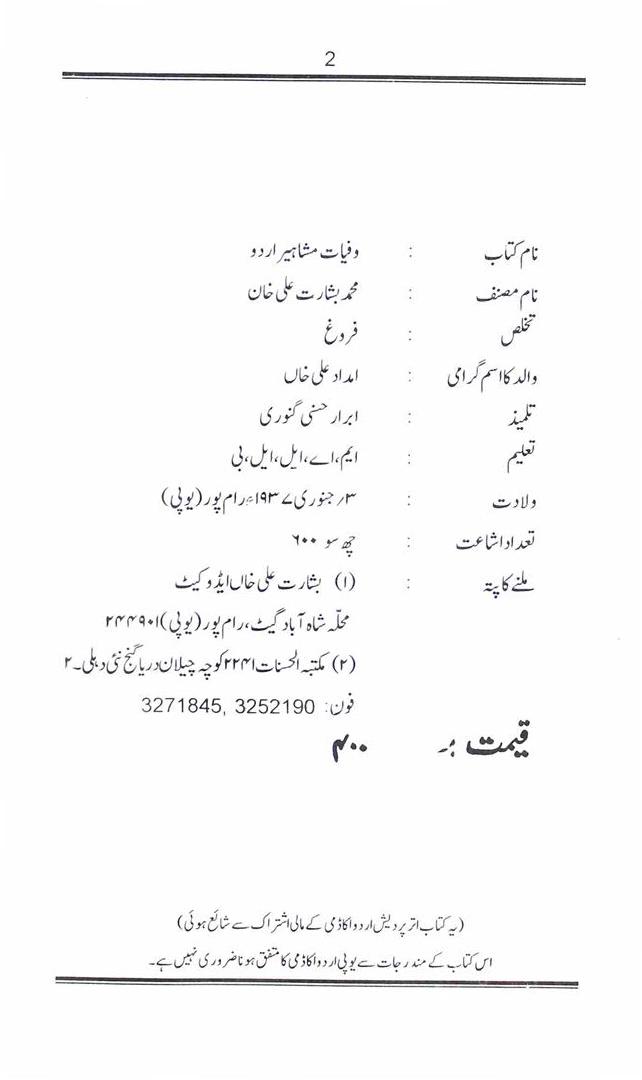 2
نام کتاب : وفیات مشاہیر اردو
نام مصنف : محمد بشارت علی خان
تخلص : فروغ
والد کا اسم گرامی : امداد علی خاں
تلمیذ : ابرار حسنی گنوری
تعلیم : ایم،اے،ایل،ایل،بی
ولادت : ۳؍جنوری ۱۹۳۷ء،رام پور (یوپی)
تعداد اشاعت : چھ سو ۶۰۰
ملنے کا پتہ : (۱) بشارت علی خاں ایڈوکیٹ
محلّہ شاہ آباد گیٹ، رام پور (یوپی) ۲۴۴۹۰۱
(۲) مکتبہ الحسنات ۲۲۴۱ کوچہ چیلان دریا گنج نئی دہلی۔۲
فون: 3271845, 3252190
قیمت :۔ ۴۰۰
(یہ کتاب اتر پردیش اردو اکاڈمی کے مالی اشتراک سے شائع ہوئی)
اس کتاب کے مندرجات سے یوپی اردو اکاڈمی کا متفق ہونا ضروری نہیں ہے۔